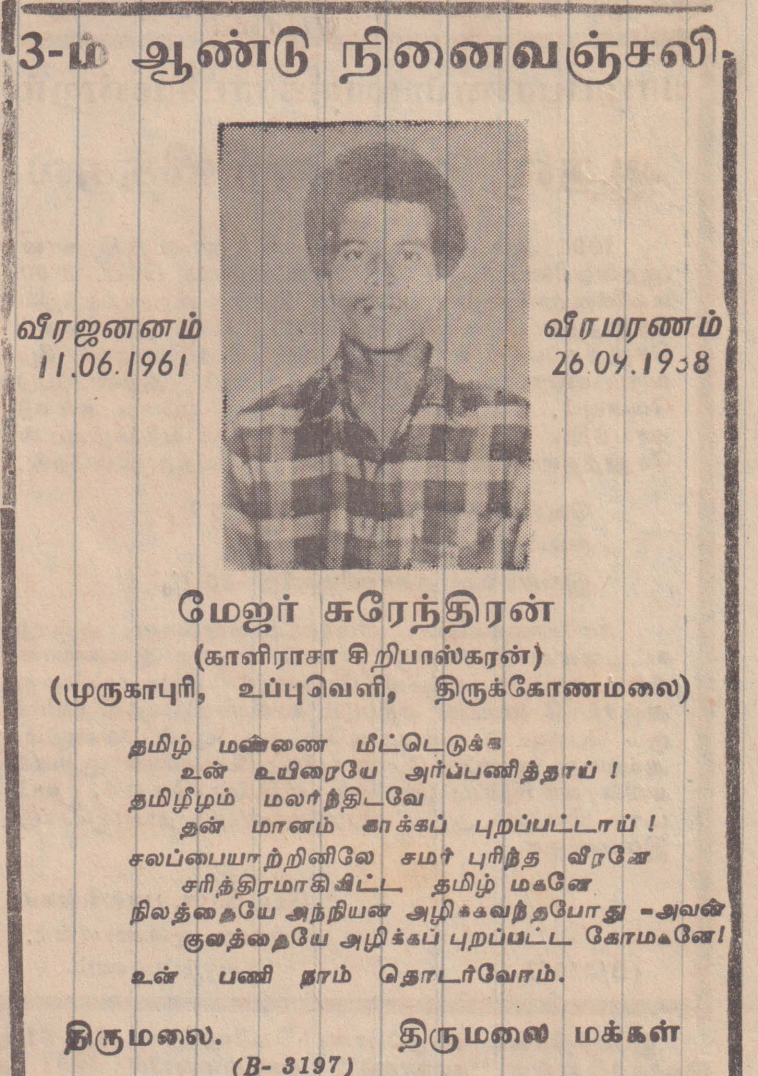 3-ம் ஆண்டு நினைவஞ்சலி
வீரஜனனம்
11.06.1961
வீரமரணம்
26.09.1988
மேஜர் சுரேந்திரன்
(காளிராசா சிறிபாஸ்கரன்)
(முருகாபுரி, உப்புவெளி, திருக்கோணமலை)
தமிழ் மண்ணை மீட்டெடுக்க
உன் உயிரையே அர்ப்பணித்தாய் !
தமிழீழம் மலர்ந்திடவே
தன் மானம் காக்கப் புறப்பட்டாய் !
சலப்பையாற்றினிலே சமர் புரிந்த வீரனே
சரித்திரமாகிவிட்ட தமிழ் மகனே
நிலத்தையே அந்நியன் அழிக்கவந்தபோது -அவன்
குலத்தையே அழிக்கப் புறப்பட்ட கோமகனே!
உன் பணி நாம் தொடர்வோம்.
திருமலை. திருமலை மக்கள்
(B- 3197)